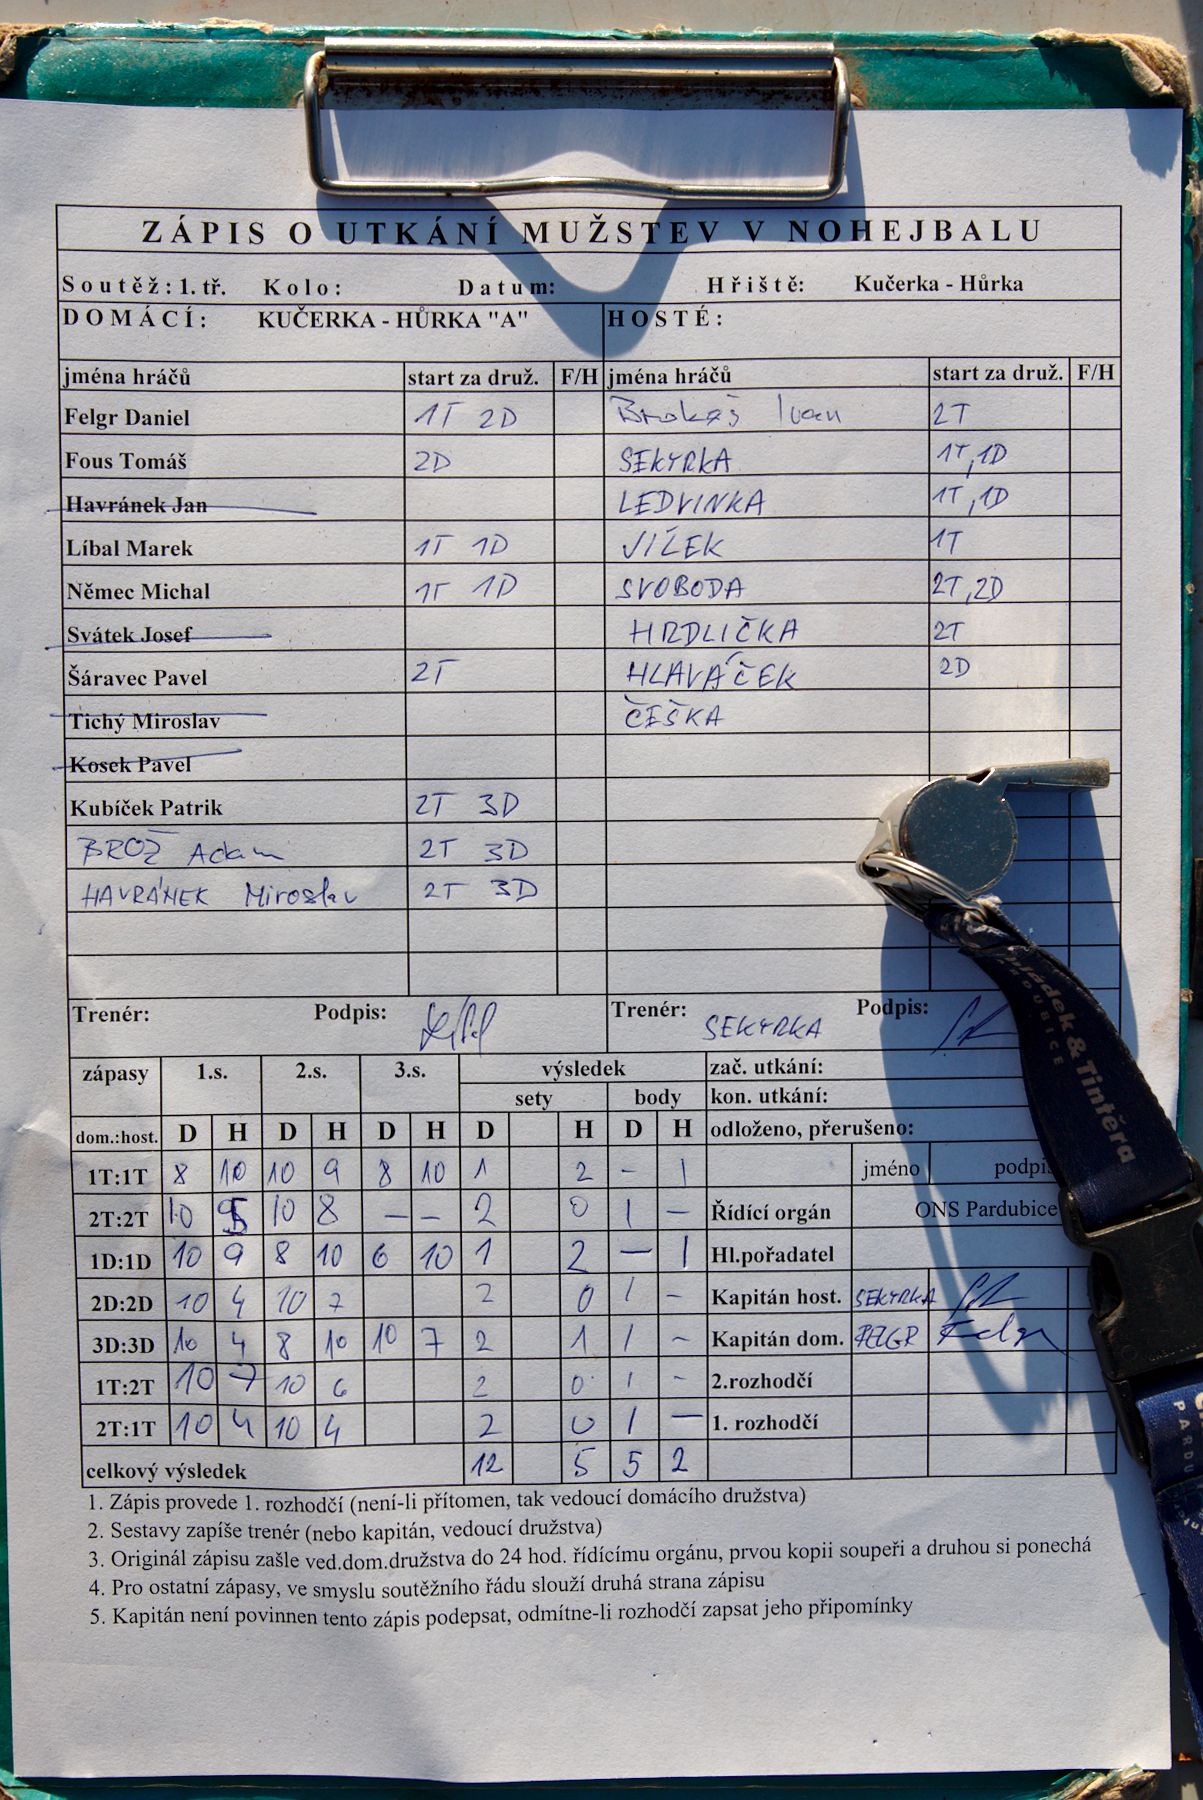 ZÁPIS O UTKÁNÍ MUŽSTEV V NOHEJBALU
Soutěž: 1. tř. Kolo: Datum: Hřiště: Kučerka - Hůrka
DOMÁCÍ: KUČERKA - HŮRKA "A" HOSTÉ:
jména hráčů start za druž. F/H jména hráčů start za druž. F/H
Felgr Daniel 1T 2D Ivan 2T
Fous Tomáš 2D SEKYRKA 1T,1D
Havránek Jan LEDVINKA 1T,1D
Líbal Marek 1T 1D VÍLEK 1T
Němec Michal 1T 1D SVOBODA 2T,2D
Svátek Josef HRDLIČKA 2T
Šáravec Pavel 2T HLAVÁČEK 2D
Tichý Miroslav ČEŠKA
Kosek Pavel
Kubíček Patrik 2T 3D
BROŽ Adam 2T 3D
HAVRÁNEK Miroslav 2T 3D
Trenér: Podpis: Trenér: SEKYRKA Podpis:
zápasy 1.s. 2.s. 3.s. výsledek zač. utkání:
sety body kon. utkání:
dom.:host. D H D H D H D H D H odloženo, přerušeno:
1T:1T 8 10 10 9 8 10 1 2 - 1 jméno podpis
2T:2T 10 5 10 8 - - 2 0 1 - Řídící orgán ONS Pardubice
1D:1D 10 9 8 10 6 10 1 2 - 1 Hl.pořadatel
2D:2D 10 4 10 7 2 0 1 - Kapitán host. SEKYRKA
3D:3D 10 4 8 10 10 7 2 1 1 - Kapitán dom. FELGR Felgr
1T:2T 10 7 10 6 2 0 1 - 2.rozhodčí
2T:1T 10 4 10 4 2 0 1 - 1. rozhodčí
celkový výsledek 12 5 5 2
1. Zápis provede 1. rozhodčí (není-li přítomen, tak vedoucí domácího družstva)
2. Sestavy zapíše trenér (nebo kapitán, vedoucí družstva)
3. Originál zápisu zašle ved.dom.družstva do 24 hod. řídícímu orgánu, prvou kopii soupeři a druhou si ponechá
4. Pro ostatní zápasy, ve smyslu soutěžního řádu slouží druhá strana zápisu
5. Kapitán není povinnen tento zápis podepsat, odmítne-li rozhodčí zapsat jeho připomínky
& Tintěra
PARDUBICE